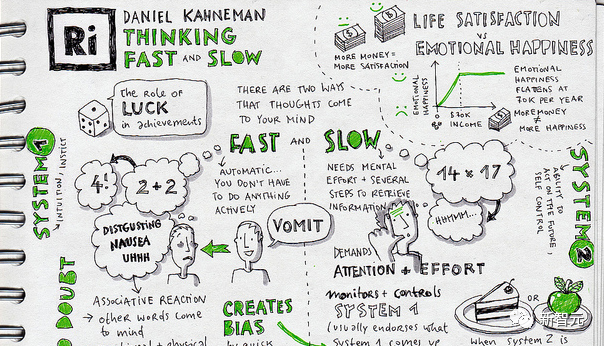 Ri
DANIEL KAHNEMAN
THINKING
FAST AND SLOW
LIFE SATISFACTION
vs
EMOTIONAL HAPPINESS
MORE MONEY =
MORE SATISFACTION
EMOTIONAL
HAPPINESS
$70K
INCOME
EMOTIONAL
HAPPINESS
FLATTENS AT
70K PER YEAR
MORE MONEY
MORE HAPPINESS
The role of
LUCK
in achievements
THERE ARE TWO WAYS
THAT THOUGHTS COME
TO YOUR MIND
FAST AND SLOW
SYSTEM 1
INTUITION, INSTICT
4!
2+2
AUTOMATIC...
YOU DON'T HAVE
TO DO ANYTHING
ACTIVELY
NEEDS MENTAL
EFFORT + SEVERAL
STEPS TO RETRIEVE
INFORMATION
14 × 17
HHMMM...
SYSTEM 2
ABILITY TO
ACT ON THE FUTURE,
SELF CONTROL
DISTGUSTING
NAUSEA
UHHH
VOMIT
DEMANDS
ATTENTION + EFFORT
DOUBT
ASSOCIATIVE REACTION
→ other words come
to mind
physical
CREATES
BIAS
by quick
monitors + controls
SYSTEM 1
(usually endorses what
System 1 comes up
OR
When System 2 is
新智元